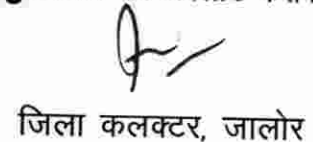 जिला कलक्टर, जालोर